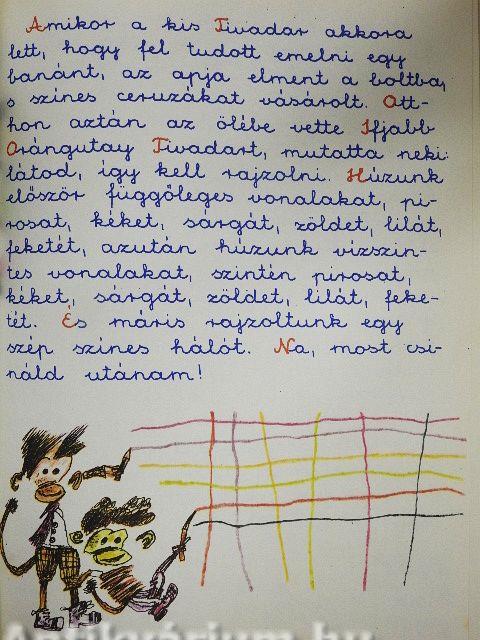 Amikor a kis Tivadar akkora
lett, hogy fel tudott emelni egy
banánt, az apja elment a boltba,
s színes ceruzákat vásárolt. Ott-
hon aztán az ölébe vette Ifjabb
Orángutay Tivadart, mutatta neki:
látod, így kell rajzolni. Húzunk
először függőleges vonalakat, pi-
rosat, kéket, sárgát, zöldet, lilát,
feketét, azután húzunk vízszin-
tes vonalakat, szintén pirosat,
kéket, sárgát, zöldet, lilát, feke-
tét. És máris rajzoltunk egy
szép színes hálót. Na, most csi-
náld utánam!
Antikvárium.hu